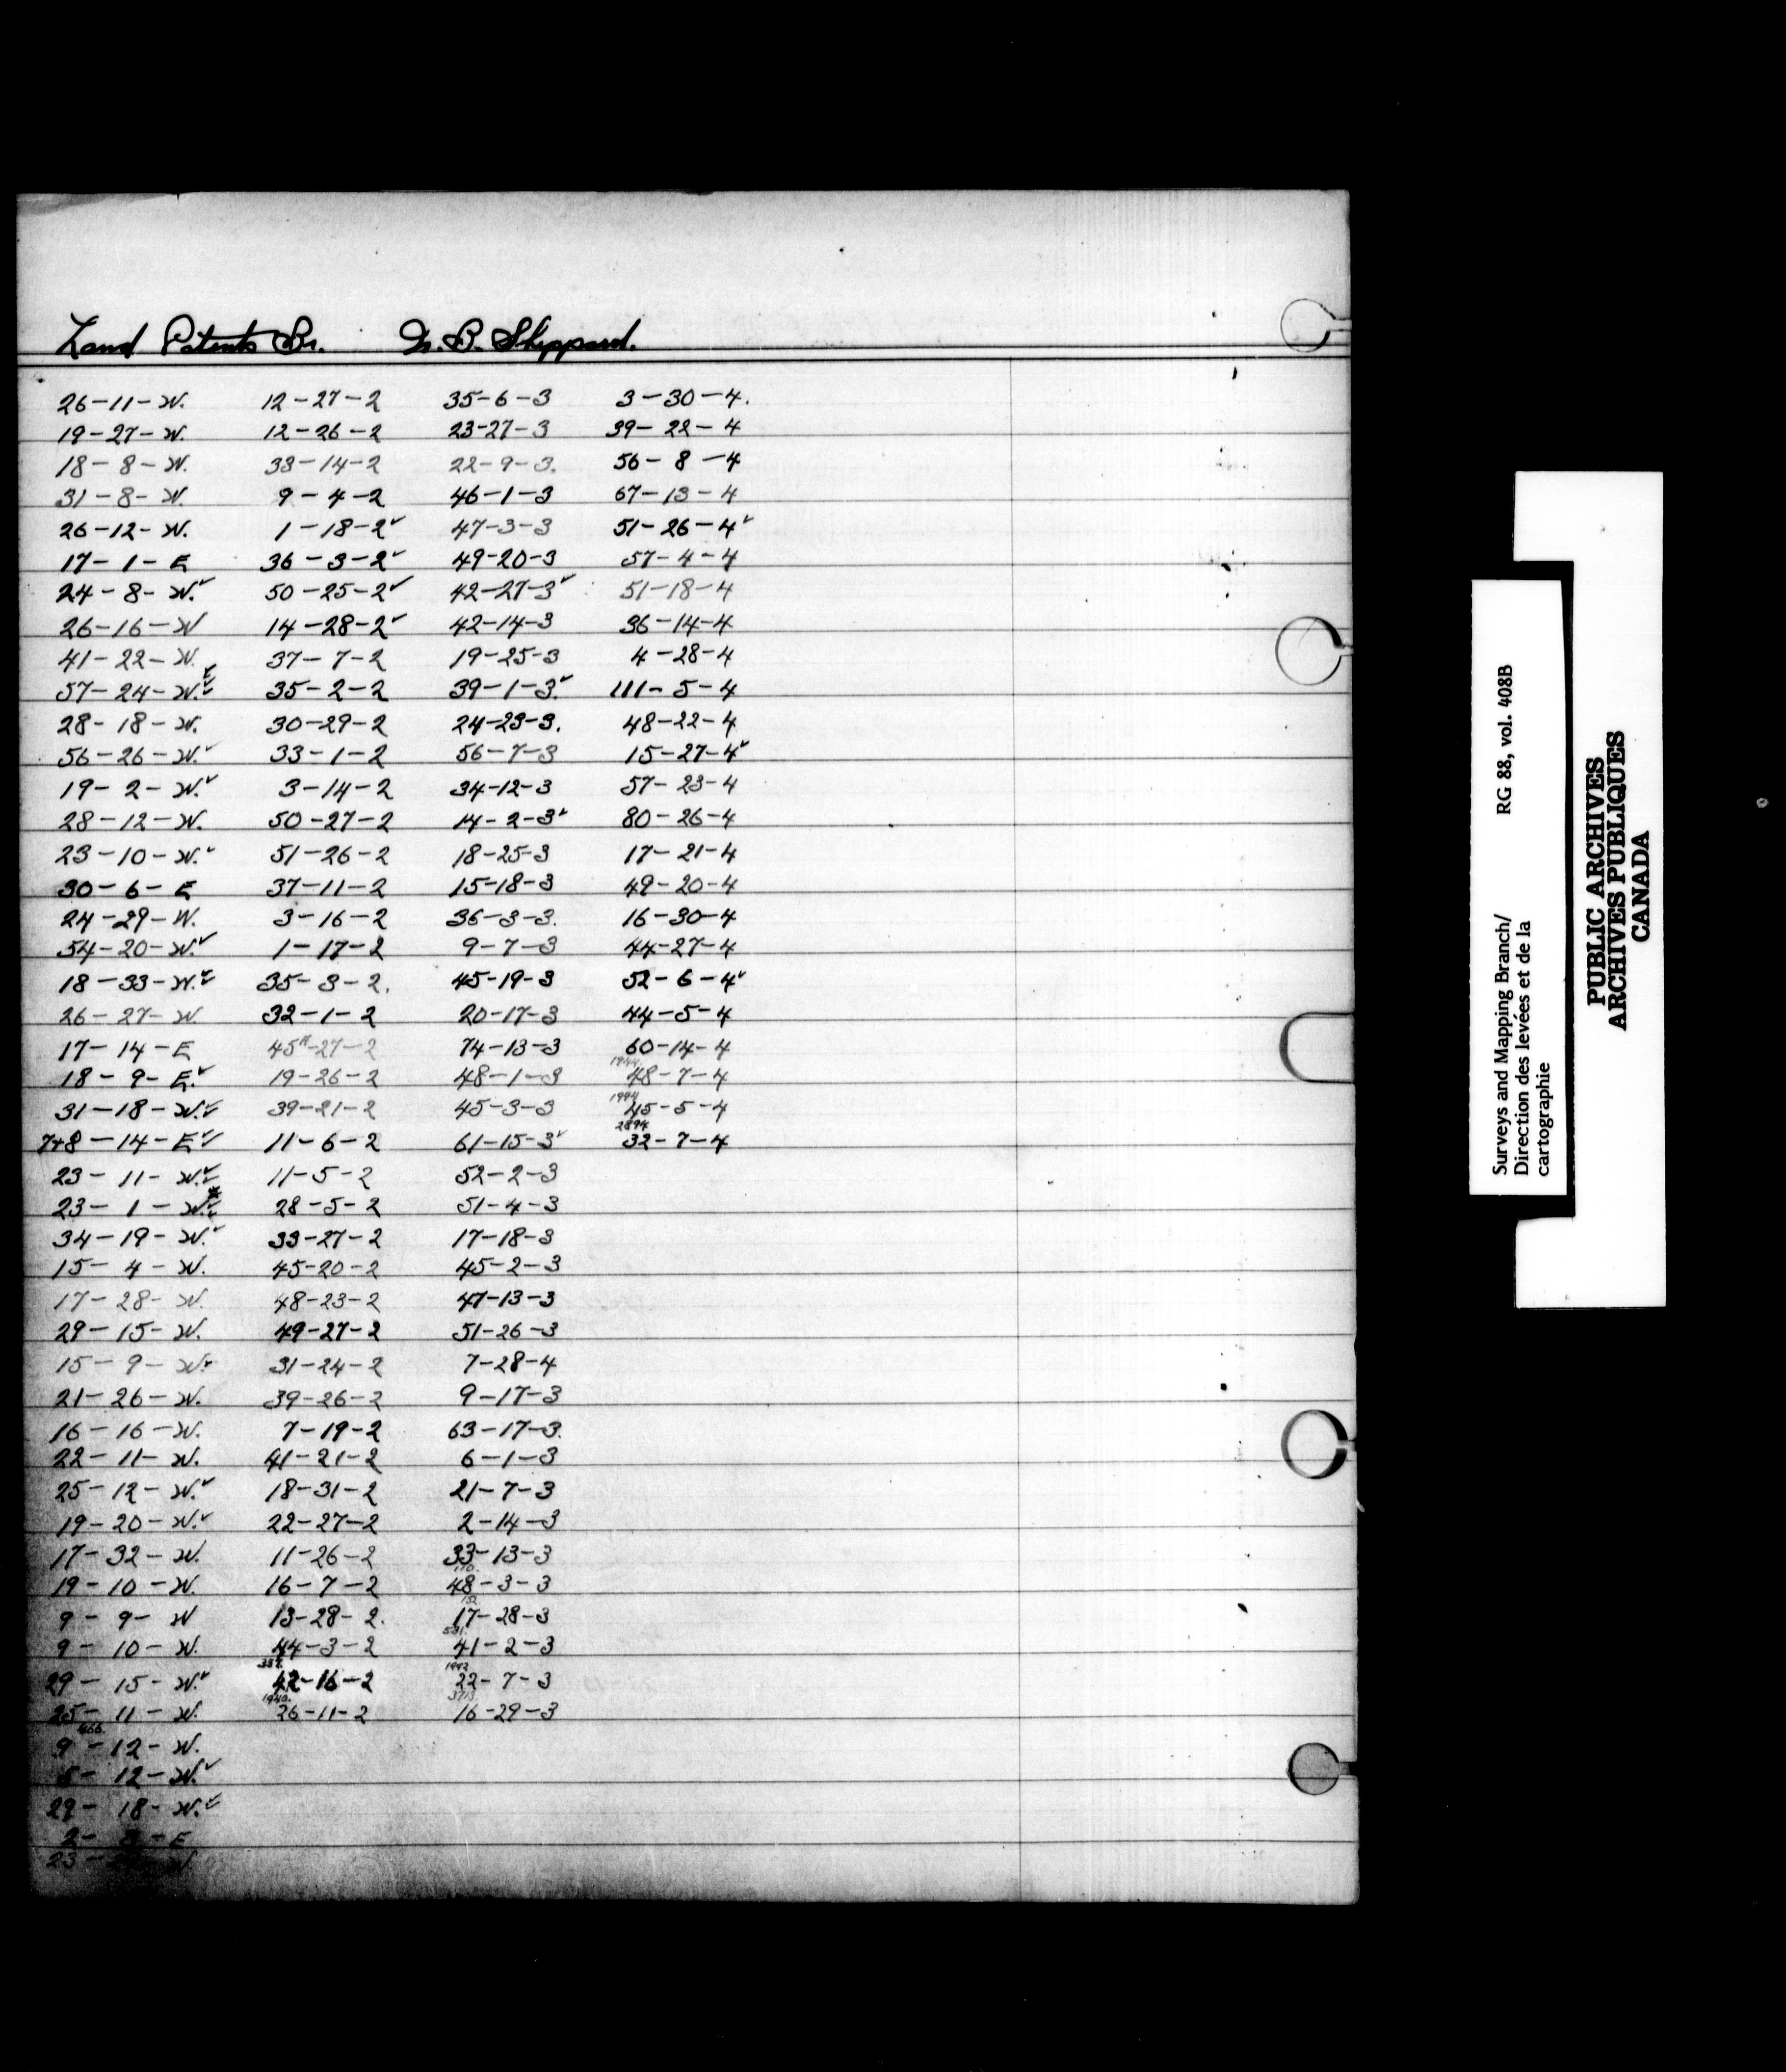 Land Patents Br. N. B. Sheppard.
26-11-W. 12-27-2 35-6-3 3-30-4.
19-27-W. 12-26-2 23-27-3 39-22-4
18-8-W. 33-14-2 22-9-3. 56-8-4
31-8-W. 9-4-2 46-1-3 67-13-4
26-12-W. 1-18-2✓ 47-3-3 51-26-4✓
17-1-E 36-3-2✓ 49-20-3 57-4-4
24-8-W.✓ 50-25-2✓ 42-27-3✓ 51-18-4
26-16-W 14-28-2✓ 42-14-3 36-14-4
41-22-W. 37-7-2 19-25-3 4-28-4
57-24-W.✓ 35-2-2 39-1-3.✓ 111-5-4
28-18-W. 30-29-2 24-23-3. 48-22-4
56-26-W.✓ 33-1-2 56-7-3 15-27-4✓
19-2-W.✓ 3-14-2 34-12-3 57-23-4
28-12-W. 50-27-2 14-2-3✓ 80-26-4
23-10-W.✓ 51-26-2 18-25-3 17-21-4
30-6-E 37-11-2 15-18-3 49-20-4
24-29-W. 3-16-2 36-3-3. 16-30-4
54-20-W.✓ 1-17-2 9-7-3 44-27-4
18-33-W.✓ 35-3-2. 45-19-3 52-6-4✓
26-27-W 32-1-2 20-17-3 44-5-4
17-14-E 45-27-2 74-13-3 60-14-4
1944.
18-9-E.✓ 19-26-2 48-1-3 48-7-4
1994
31-18-W.✓ 39-21-2 45-3-3 45-5-4
2894
7+8-14-E✓ 11-6-2 61-15-3✓ 32-7-4
23-11-W.✓ 11-5-2 52-2-3
23-1-W.✓ 28-5-2 51-4-3
34-19-W.✓ 33-27-2 17-18-3
15-4-W. 45-20-2 45-2-3
17-28-W. 48-23-2 47-13-3
29-15-W. 49-27-2 51-26-3
15-9-W.✓ 31-24-2 7-28-4
21-26-W. 39-26-2 9-17-3
16-16-W. 7-19-2 63-17-3.
22-11-W. 41-21-2 6-1-3
25-12-W.✓ 18-31-2 21-7-3
19-20-W.✓ 22-27-2 2-14-3
17-32-W. 11-26-2 33-13-3
19-10-W. 16-7-2 48-3-3
152
9-9-W 13-28-2. 17-28-3
9-10-W. 44-3-2 41-2-3
339. 1992
29-15-W.✓ 42-16-2 22-7-3
1940. 3713
25-11-W. 26-11-2 16-29-3
466.
9-12-W.
12-W.✓
29-18-W.✓
2- -E
23-
Surveys and Mapping Branch/ RG 88, vol. 408B
Direction des levées et de la
cartographie
PUBLIC ARCHIVES
ARCHIVES PUBLIQUES
CANADA